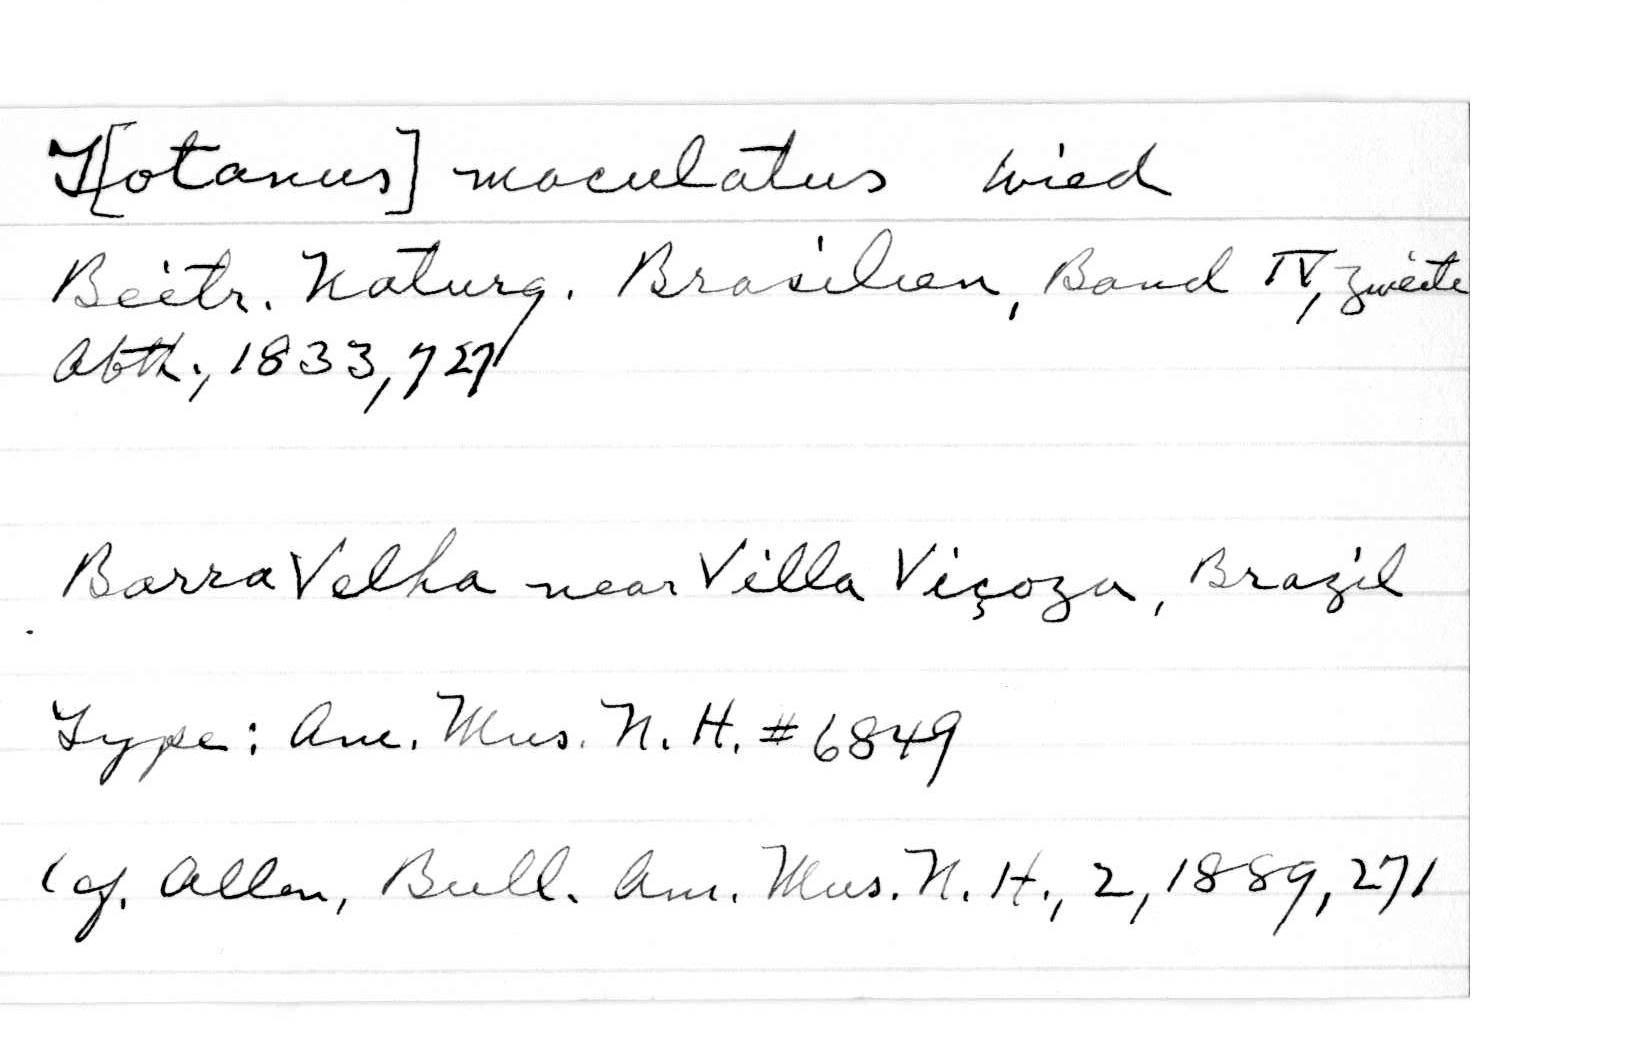 T[otanus] maculatus Wied
Beitr. Naturg. Brasilien, Band IV, Zweite
Abth., 1833, 727
Barra Velha near Villa Viçoza, Brazil
Type: Am. Mus. N. H. #6849
(cf. Allen, Bull. Am. Mus. N. H., 2, 1889, 271